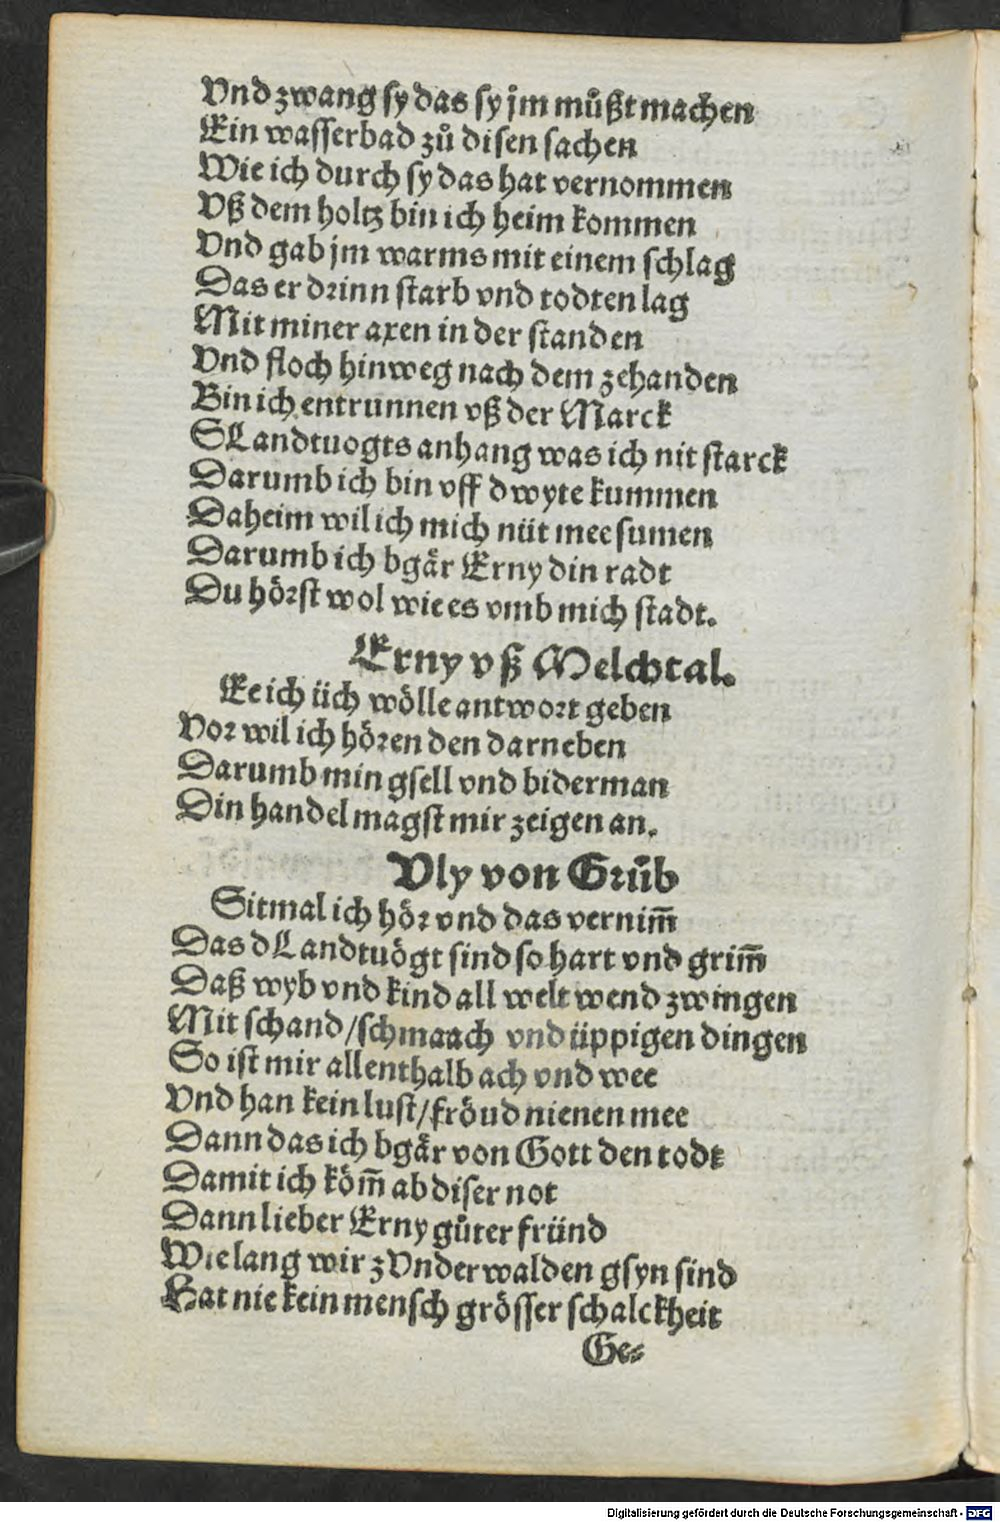 Vnd zwang sy das sy jm muͤßt machen
Ein wasserbad zuͦ disen sachen
Wie ich durch sy das hat vernommen
Vß dem holtz bin ich heim kommen
Vnd gab jm warms mit einem schlag
Das er drinn starb vnd todten lag
Mit miner axen in der standen
Vnd floch hinweg nach dem zehanden
Bin ich entrunnen vß der Marck
SLandtuogts anhang was ich nit starck
Darumb ich bin vff d wyte kummen
Daheim wil ich mich nüt mee sumen
Darumb ich bgär Erny din radt
Du hörst wol wie es vmb mich stadt.
Erny vß Melchtal.
Ee ich üch wölle antwort geben
Vor wil ich hören den darneben
Darumb min gsell vnd biderman
Din handel magst mir zeigen an.
Vly von Gruͦb
Sitmal ich hör vnd das vernim̃
Das d Landtuögt sind so hart vnd grim̃
Daß wyb vnd kind all welt wend zwingen
Mit schand / schmaach vnd üppigen dingen
So ist mir allenthalb ach vnd wee
Vnd han kein lust / fröud nienen mee
Dann das ich bgär von Gott den todt
Damit ich köm̃ ab diser not
Dann lieber Erny guͦter fründ
Wie lang wir zVnderwalden gsyn sind
Hat nie kein mensch grösser schalckheit
Ge⸗
Digitalisierung gefördert durch die Deutsche Forschungsgemeinschaft - DFG